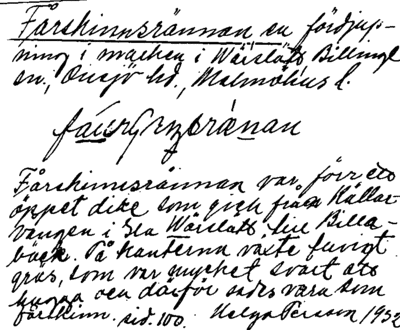 Fårskinnsrännan en fördjup-
ning i marken i Wäislätt Billinge
sn, Onsjö hd., Malmöhus l.
Fårskinnsrännan var förr ett
öppet dike som gick från Källar-
vången i Wäislätt till Billa-
bäck. På kanterna växte luvigt
gräs, som var mycket svårt att
hugga och därför sades vara som
fårskinn. sid. 100. Helge Persson 1932